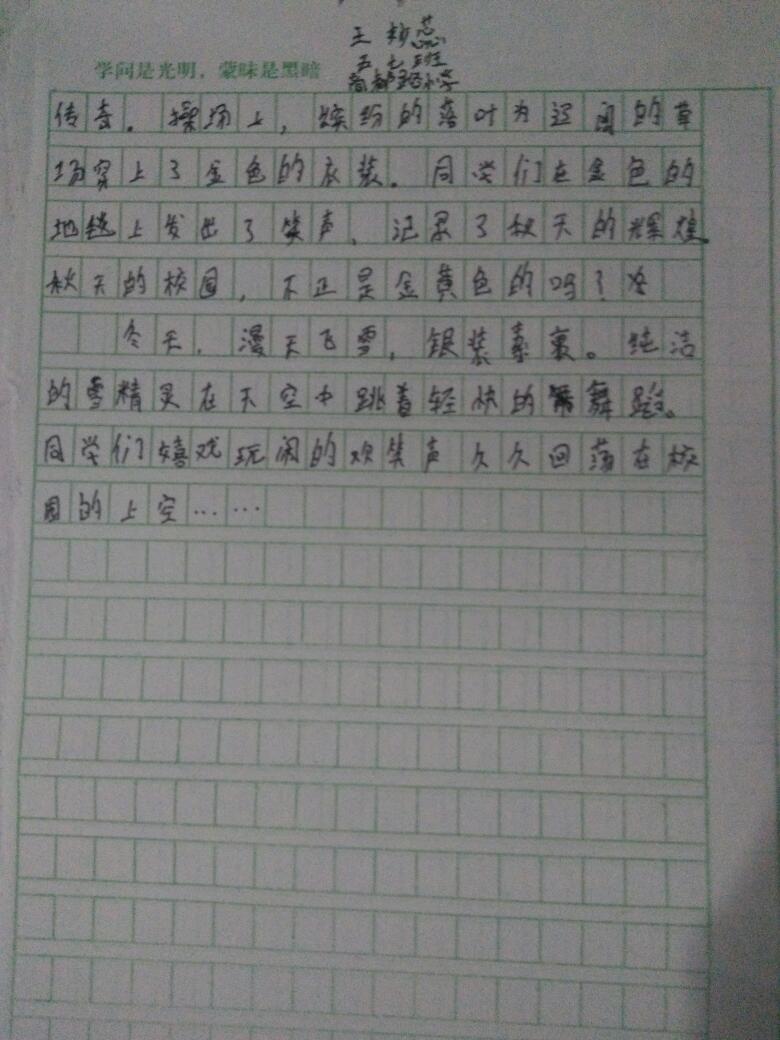 王 蕊
五七班
商都路小学
学问是光明，蒙昧是黑暗
传奇。操场上，缤纷的落叶为辽阔的草
场穿上了金色的衣装。同学们在金色的
地毯上发出了笑声，记录了秋天的辉煌。
秋天的校园，不正是金黄色的吗？
冬天，漫天飞雪，银装素裹。纯洁
的雪精灵在天空中跳着轻快的舞蹈。
同学们嬉戏玩闹的欢笑声久久回荡在校
园的上空……